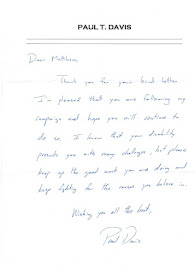 PAUL T. DAVIS
Dear Matthew,
Thank you for your kind letter.
I'm pleased that you are following my
campaign and hope you will continue to
do so. I know that your disability
presents you with many challenges, but please
keep up the good work you are doing and
keep fighting for the causes you believe in.
Wishing you all the best,
Paul Davis